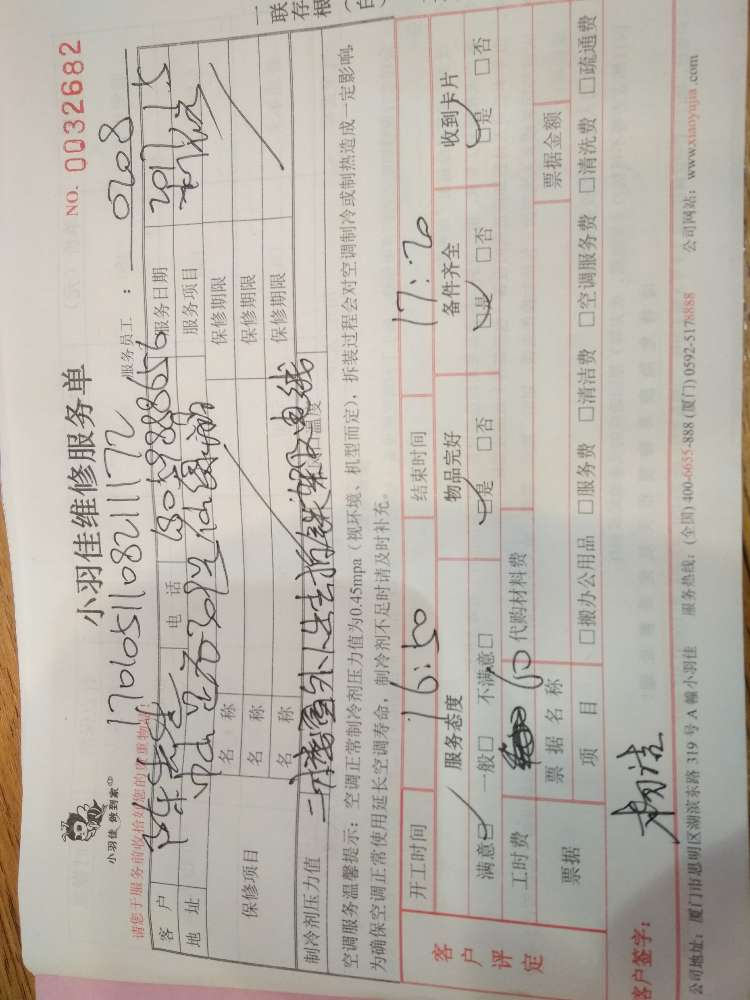 小羽佳维修服务单
NO. 0032682
小羽佳 做到家
17010511082111172
请您于服务前收拾好您的贵重物品
服务员工： 0208
客户
电话
服务日期 2017 1 5
地址
服务项目
保修项目
名称
保修期限
名称
保修期限
名称
保修期限
制冷剂压力值
空调服务温馨提示：空调正常制冷剂压力值为0.45mpa（视环境、机型而定），拆装过程会对空调制冷或制热造成一定影响，
为确保空调正常使用延长空调寿命，制冷剂不足时请及时补充。
客户评定
开工时间 16:50 结束时间 17:20
服务态度 物品完好 备件齐全 收到卡片
满意☑ 一般□ 不满意□ ☑是 □否 ☑是 □否 ☑是 □否
工时费 60 代购材料费
票据 票据名称 票据金额
项目 □搬办公用品 □服务费 □清洁费 □空调服务费 □清洗费 □疏通费
客户签字： 杨洁
公司地址：厦门市思明区湖滨东路 319 号 A 幢小羽佳 服务热线：(全国) 400-6655-888 (厦门) 0592-5178888 公司网站：www.xiaoyujia.com
一
联
存
根